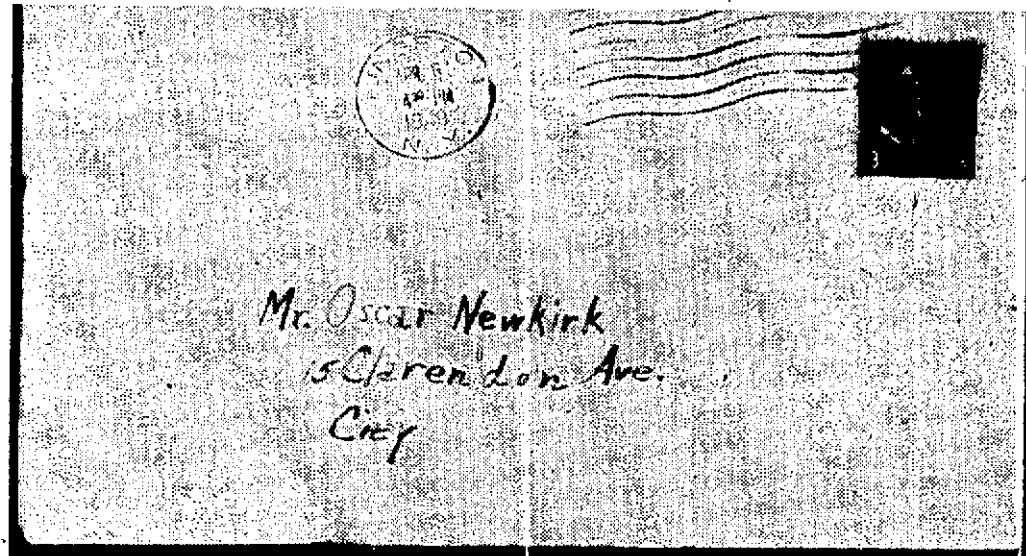 N. Y.
3
Mr. Oscar Newkirk
15 Clarendon Ave.
City